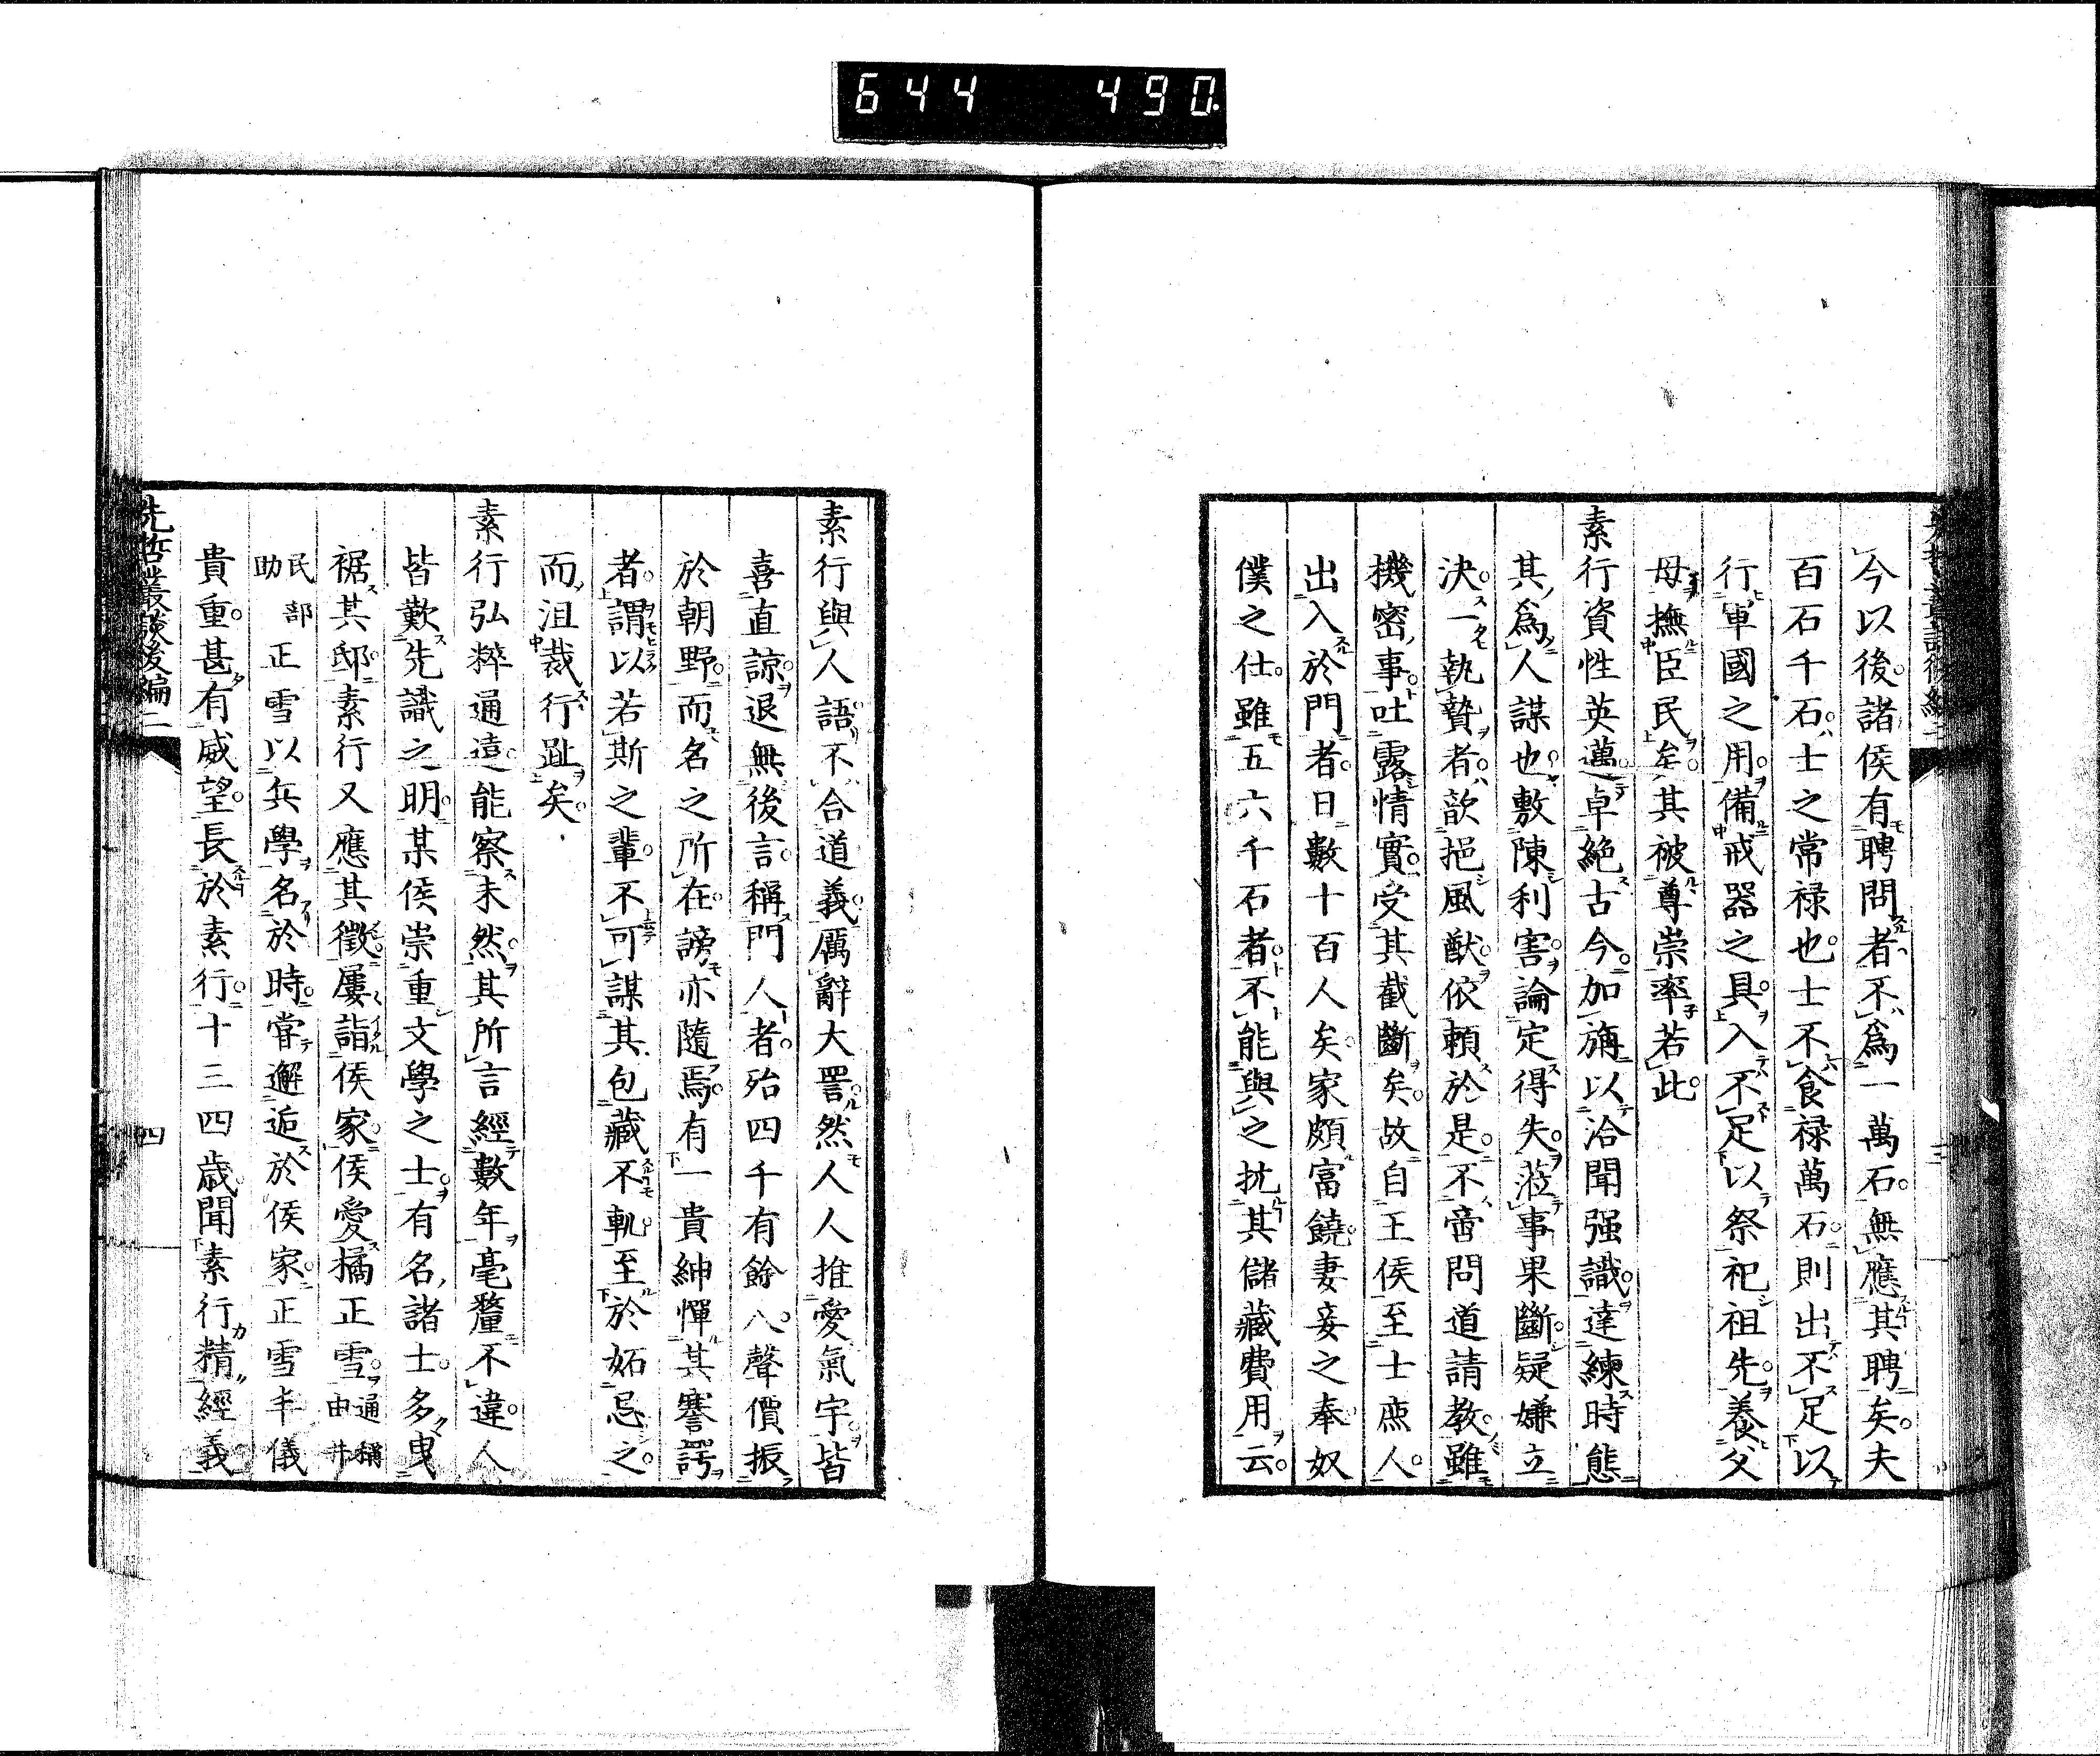 644 490
今以後諸侯有聘問者不爲一萬石無應其聘矣夫
百石千石士之常禄也士不食禄萬石則出不足以
行軍國之用備戎器之具入不足以祭祀祖先養父
母撫臣民矣其被尊崇率若此
素行資性英邁卓絶古今加旃以洽聞强識達練時態
其爲人謀也敷陳利害論定得失蒞事果斷疑嫌立
決一執贄者歆挹風猷依頼於是不啻問道請教雖
機密事吐露情實受其截斷矣故自王侯至士庶人
出入於門者日數十百人矣家頗富饒妻妾之奉奴
僕之仕雖五六千石者不能與之抗其儲藏費用云
素行與人語不合道義厲辭大詈然人人推愛氣宇皆
喜直諒退無後言稱門人者殆四千有餘人聲價振
於朝野而名之所在謗亦隨焉有一貴紳憚其謇諤
者謂以若斯之輩不可謀其包藏不軌至於妬忌之
而沮裁行趾矣
素行弘粹通遠能察未然其所言經數年毫釐不違人
皆歎先識之明某侯崇重文學之士有名諸士多曳
裾其邸素行又應其徴屢詣侯家侯愛橘正雪通稱由井
民部助正雪以兵學名於時嘗邂逅於侯家正雪丰儀
貴重甚有威望長於素行十三四歳聞素行精經義
先哲叢談後編二
四